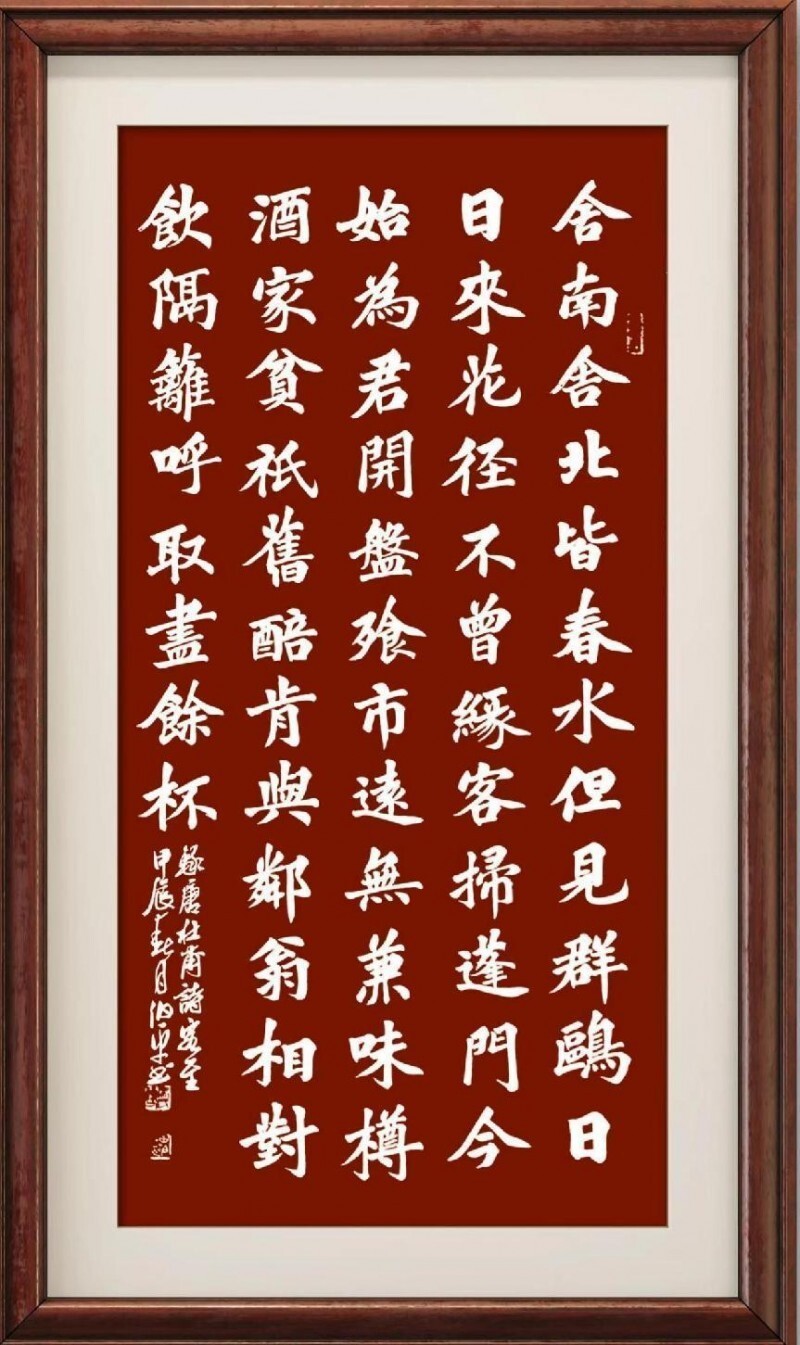 舍南舍北皆春水但見群鷗日
日來花径不曾緣客掃蓬門今
始為君開盤飧市遠無兼味樽
酒家貧祇舊醅肯與鄰翁相對
飲隔籬呼取盡餘杯
録唐杜甫詩客至
甲辰春月伯平書